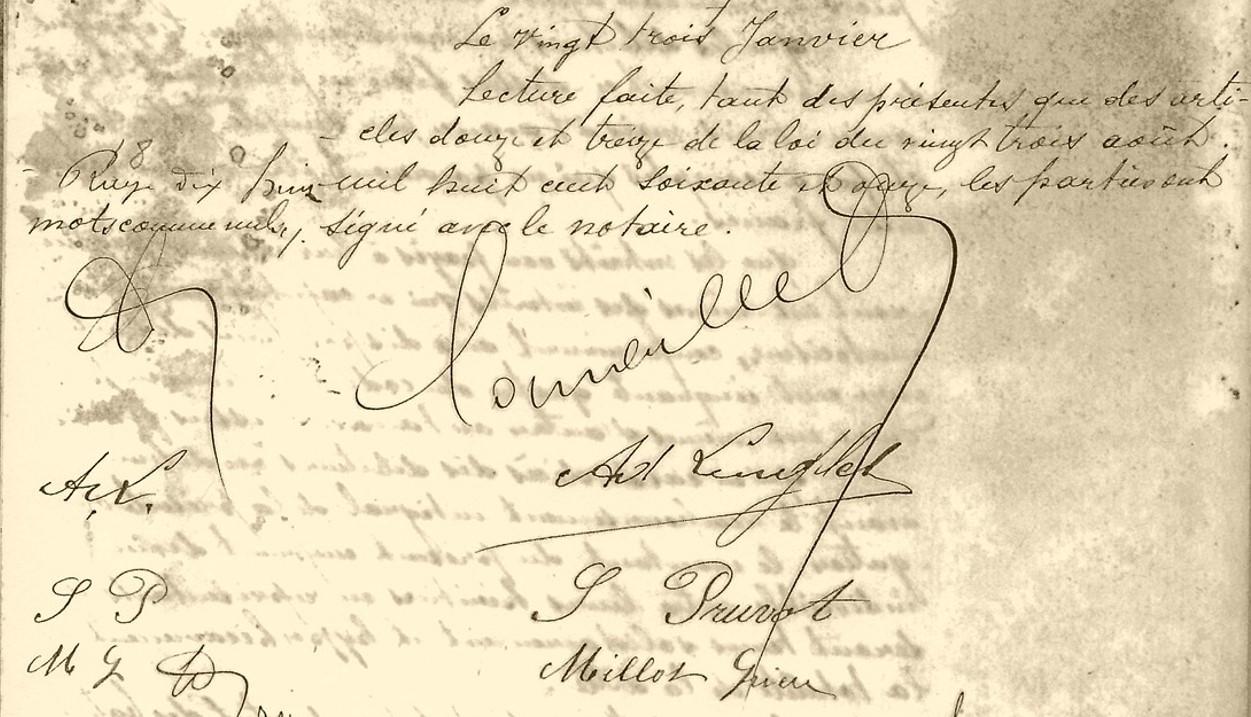 Le vingt trois Janvier
Lecture faite, tant des présentes que des arti-
cles douze et treize de la loi du vingt trois août
18
Rayé dix huit mil huit cent soixante et onze, les parties ont
mots comme nuls, signé avec le notaire.
Corneille
A. L. Ad Lenglet
S P S Pruvot
M G Millot